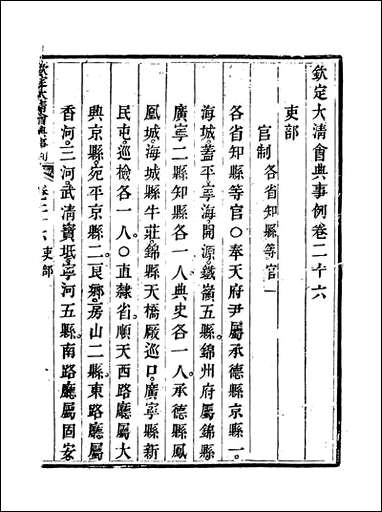 欽定大清會典事例卷二十六
吏部
官制 各省知縣等官一
各省知縣等官○奉天府尹屬承德縣京縣一。
海城。蓋平。寧海。開原。鐵嶺五縣。錦州府屬錦縣
廣寧二縣知縣各一人。典史各一人。承德縣鳳
凰城。海城縣牛莊。錦縣天橋廠巡口。廣寧縣新
民屯。巡檢各一人。○直隸省。順天西路廳屬大
興京縣。宛平京縣二。良鄉。房山二縣。東路廳屬
香河。三河。武清。寶坻。寧河五縣。南路廳屬固安
欽定大清會典事例 卷二十六 吏部